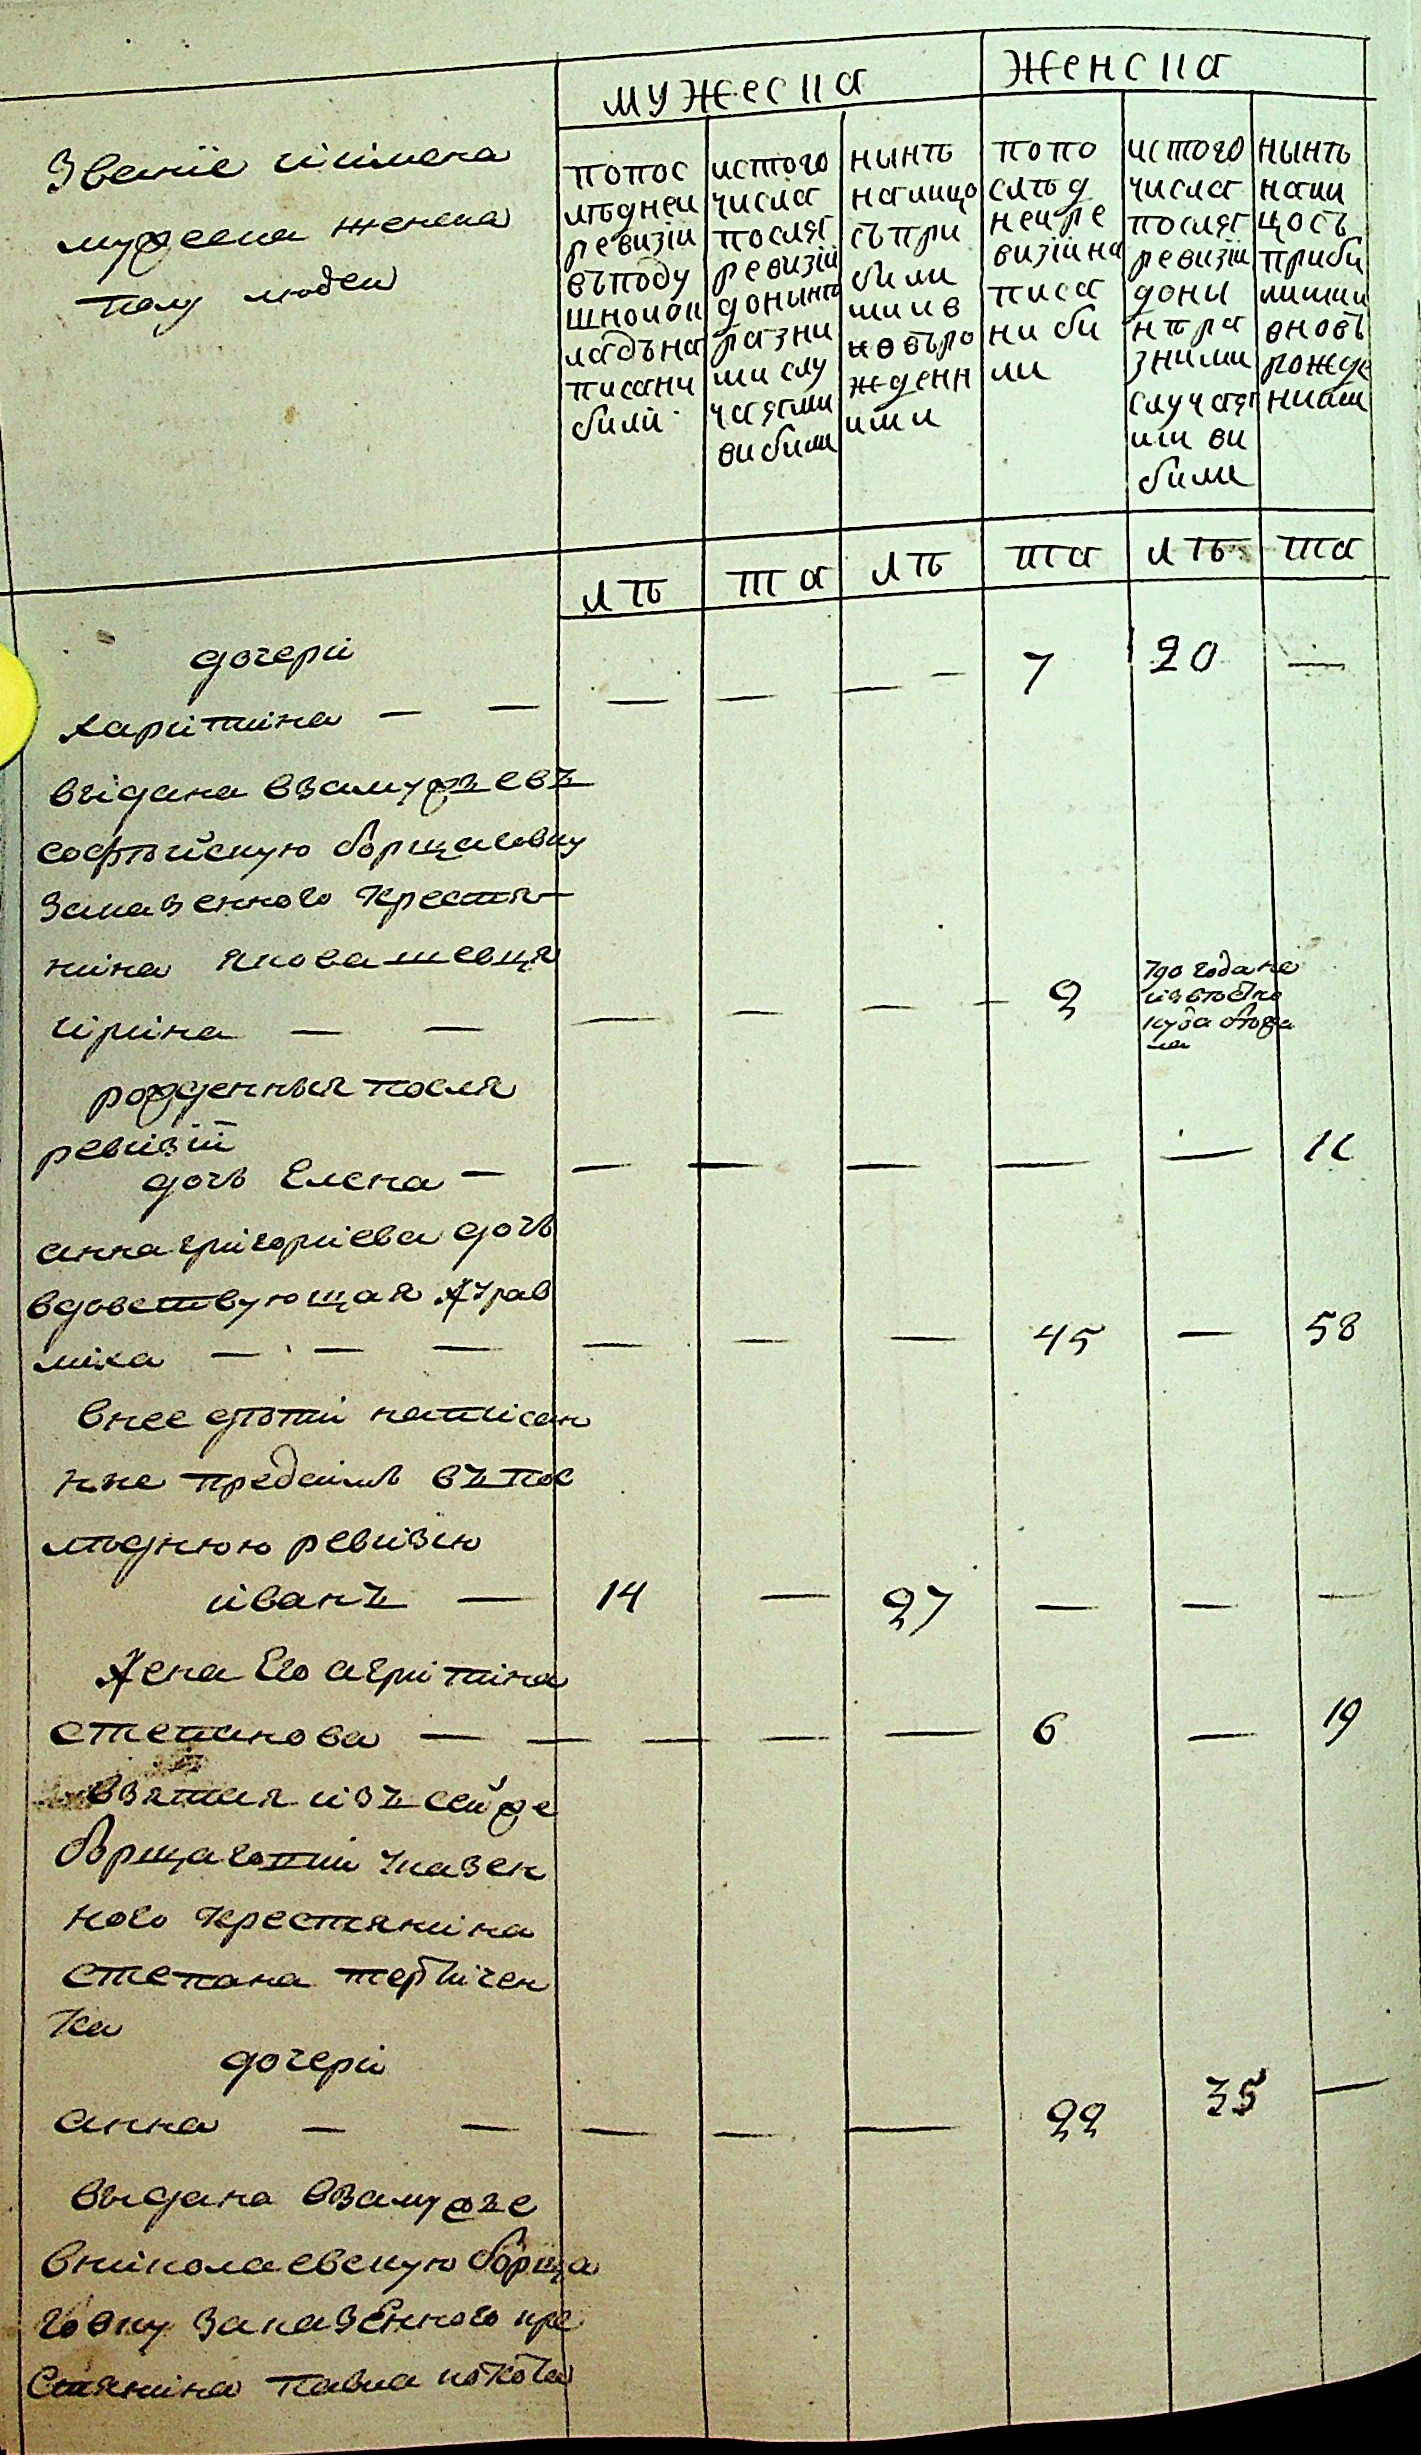 мужеска
женска
Званіе иімена
мужеска женска
полу людей
попос
лѣдней
ревизіи
въподу
шномок
ладѣна
писани
били
истого
числа
посля
ревизіи
донынѣ
разни
ми слу
чаями
вибили
нынѣ
налицо
съпри
били
мии в
новъро
жденн
ими
попо
слѣд
нейре
визіина
писа
ни би
ли
истого
числа
посля
ревизіи
дони
нѣра
зними
случая
ми ви
били
нынѣ
нали
цосъ
приби
лими
вновъ
рожде
ними
лѣ
та
лѣ
та
лѣ
та
дочери
харитина — — — — — — 7 20 —
выдана взамужъевъ
софѣйскую борщаговку
заказенного крестя
нина якова шевця
ирина — — — — — — 9 790 года не
извѣстно
куда бѣжа
ла
рожденныя посля
ревизіи
дочь Елена — — — — — — 11
анна григориева дочь
вдовствующая журав
лиха — — — — — — 45 — 58
внее дѣти написан
нне предсимъ въпос
лѣднюю ревизію
иванъ — 14 — 27 — — —
жена Его агрипина
степанова — — — — — 6 — 19
взятая изъ сейже
борщаговки казен
ного крестянина
степана
ка
дочери
анна — — — — — 22 35 —
выдана взамужъе
вниколаевскую борща
говку заказенного кре
стянина павла